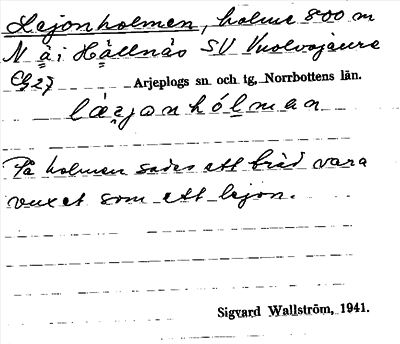 Lejonholmen, holme 800 m
N å i Hällnäs SV Vuolvojaure
Cg 27
Arjeplogs sn. och tg, Norrbottens län.
læjanhólman
På holmen sades ett träd vara
vuxet som ett lejon.
Sigvard Wallström, 1941.